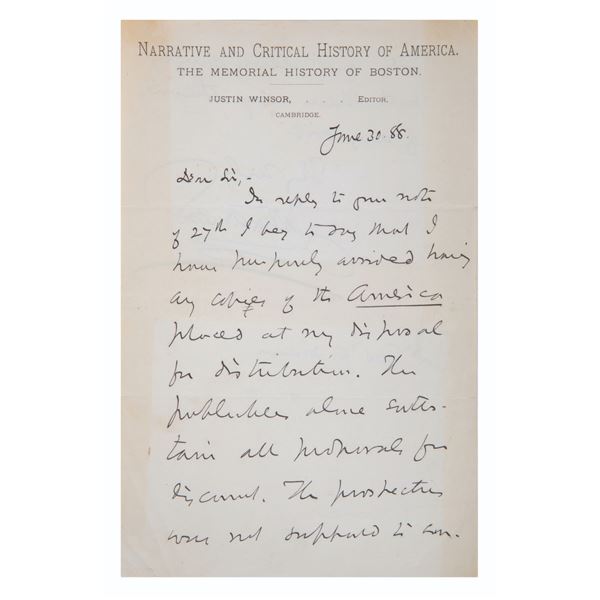 NARRATIVE AND CRITICAL HISTORY OF AMERICA.
THE MEMORIAL HISTORY OF BOSTON.
JUSTIN WINSOR, . . . EDITOR.
CAMBRIDGE.
June 30. 88.
Dear Sir,-
In reply to your note
of 27th I beg to say that I
have purposely avoided having
any copies of the America
placed at my disposal
for distribution. The
publishers alone enter-
tain all proposals for
discount. The prospectus
were not supposed to con-